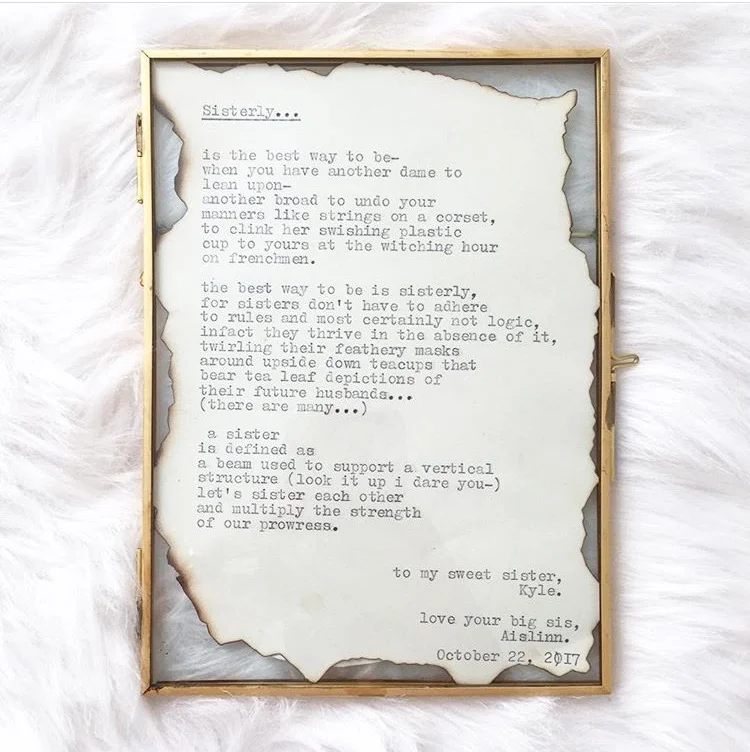 Sisterly...
is the best way to be-
when you have another dame to
lean upon-
another broad to undo your
manners like strings on a corset,
to clink her swishing plastic
cup to yours at the witching hour
on frenchmen.
the best way to be is sisterly,
for sisters don't have to adhere
to rules and most certainly not logic,
infact they thrive in the absence of it,
twirling their feathery masks
around upside down teacups that
bear tea leaf depictions of
their future husbands...
(there are many...)
a sister
is defined as
a beam used to support a vertical
structure (look it up i dare you-)
let's sister each other
and multiply the strength
of our prowress.
to my sweet sister,
Kyle.
love your big sis,
Aislinn.
October 22, 2017